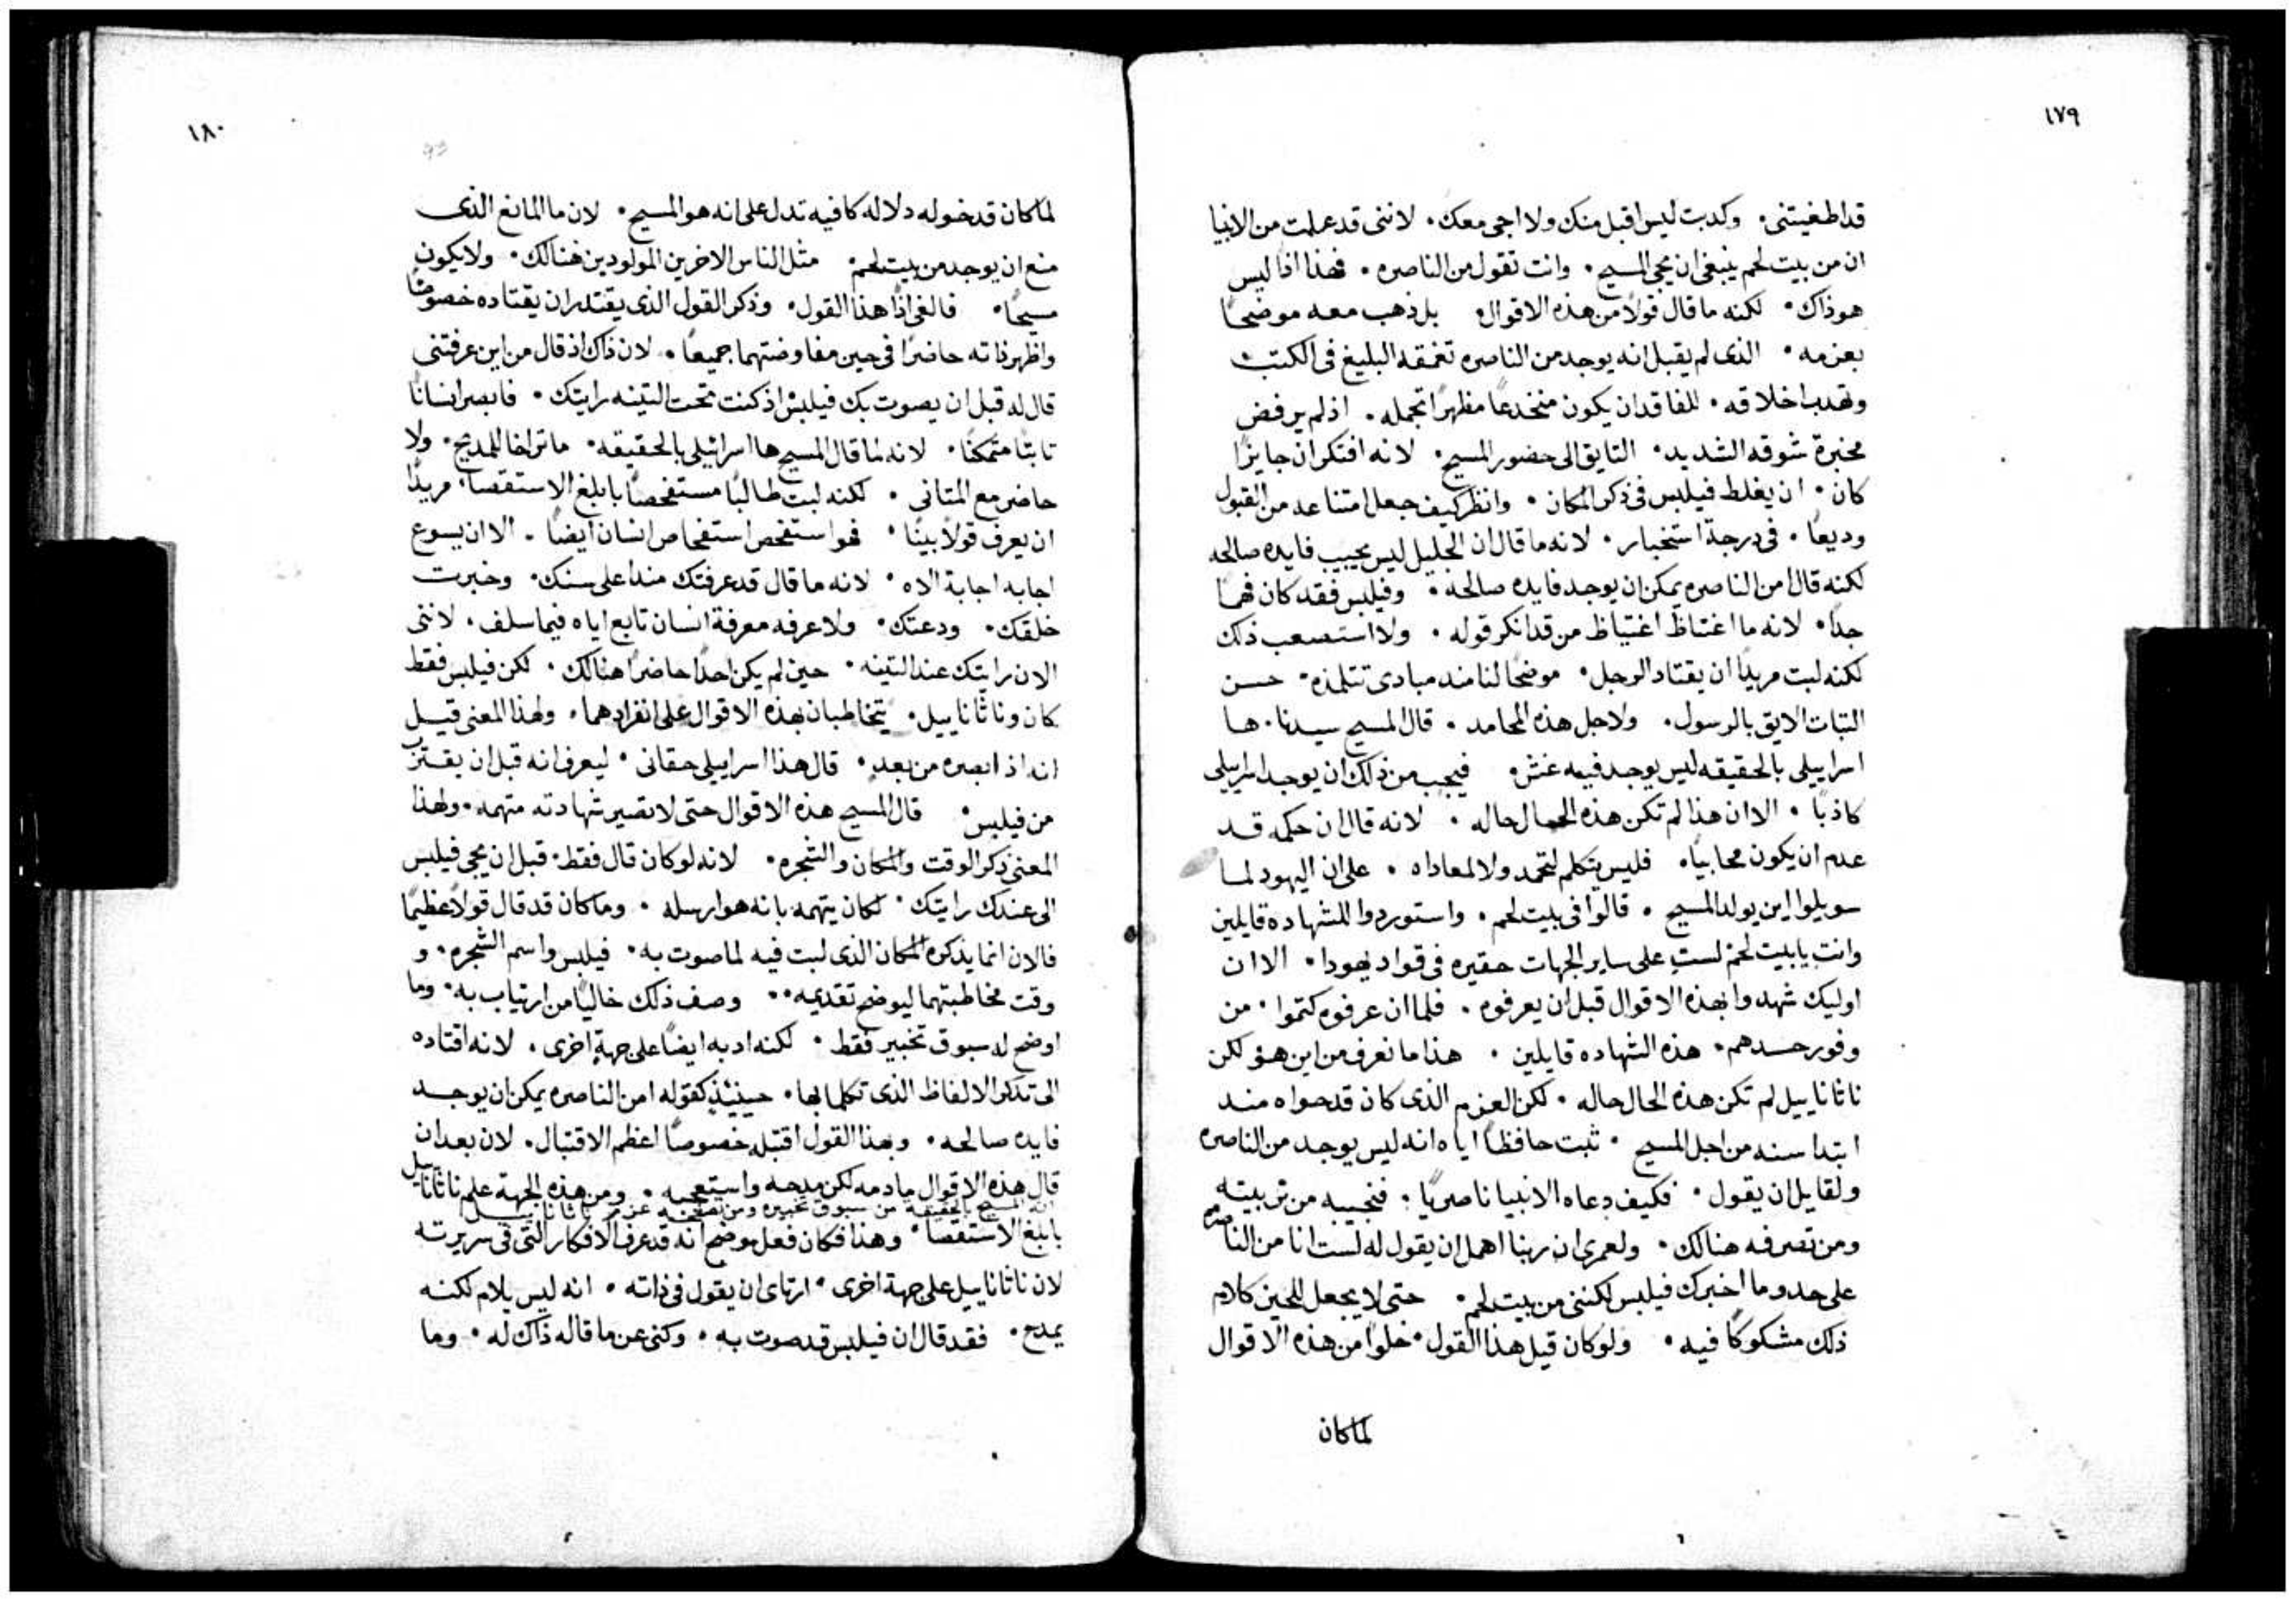 ١٧٩
قد اطغيتنى · وكدبت ليس اقبل منك ولا اجى معك · لاننى قد علمت من الانبيا
ان من بيت لحم ينبغى ان يجى المسيح · وانت تقول من الناصره · فهذا اذا ليس
هو ذاك · لكنه ما قال قولاً من هذه الاقوال · بل ذهب معه موضحاً
بعزمه · الذى لم يقبل انه يوجد من الناصره تعمقه البليغ فى الكتب ·
وتهدب اخلاقه · للفاقد ان يكون منخدعاً مظهراً تجمله · اذ لم يرفض
مخبرة شوقه الشديد · التايق الى حضور المسيح · لانه افتكر ان جايزاً
كان · ان يغلط فيلبس فى ذكر المكان · وانظر كيف جعل امتناعه من القبول
وديعاً · فى درجة استخبار · لانه ما قال ان الجليل ليس يجيب فايده صالحه
لكنه قال امن الناصره يمكن ان يوجد فايده صالحه · وفيلبس فقد كان فهماً
جداً · لانه ما اغتاظ اغتياظ من قد انكر قوله · ولا استصعب ذلك
لكنه لبت مريداً ان يقتاد الرجل · موضحاً لنا مند مبادى تتلمذه · حسن
التبات الايق بالرسول · ولاجل هذه المحامد · قال المسيح سيدنا · ها
اسراييلى بالحقيقه ليس يوجد فيه غش · فيجب من ذلك ان يوجد اسراييلى
كاذباً · الا ان هذا لم تكن هذه الحال حاله · لانه قال ان حكمه قد
عدم ان يكون محابياً · فليس يتكلم لتحمد ولا لمعاداه · على ان اليهود لما
سويلوا اين يولد المسيح · قالوا فى بيت لحم · واستوردوا للشهاده قايلين
وانت يا بيت لحم لست على ساير الجهات حقيره فى قواد يهودا · الا ان
اوليك شهدوا بهذه الاقوال قبل ان يعرفوه · فلما ان عرفوه كتموا · من
وفور حسدهم · هذه الشهاده قايلين · هذا ما نعرف من اين هو · لكن
ناثاناييل لم تكن هذه الحال حاله · لكن العزم الذى كان قد حواه مند
ابتدا سنه من اجل المسيح · ثبت حافظاً اياه انه ليس يوجد من الناصره
ولقايل ان يقول · فكيف دعاه الانبيا ناصرياً · فنجيبه من تربيته
ومن تصرفه هنالك · ولعمرى ان ربنا اهمل ان يقول له لست انا من الناصره
على حدو ما اخبرك فيلبس لكننى من بيت لحم · حتى لا يجعل للحين كلام
ذلك مشكوكاً فيه · ولو كان قيل هذا القول · خلواً من هذه الاقوال
لما كان
١٨٠
لما كان قد خوله دلاله كافيه تدل على انه هو المسيح · لان ما المانع الذى
منع ان يوجد من بيت لحم · مثل الناس الاخرين المولودين هنالك · ولا يكون
مسيحاً · فالغى اذاً هذا القول · وذكر القول الذى يقتدر ان يقتاده خصوصاً
واظهر ذاته حاضراً فى حين مفاوضتهما جميعاً · لان ذاك اذ قال من اين عرفتنى
قال له قبل ان يصوت بك فيلبس اذ كنت تحت التينه رايتك · فابصر انساناً
ثابتاً متمكناً · لانه لما قال المسيح ها اسرائيلى بالحقيقه · ما تراخا للمديح · ولا
حاضر مع المتانى · لكنه لبت طالباً مستفحصاً بابلغ الاستقصا · مريداً
ان يعرف قولاً بيناً · فهو استفحص استفحاص انسان ايضاً · الا ان يسوع
اجابه اجابة الاه · لانه ما قال قد عرفتك مند اعلى سنك · وخبرت
خلقك · ودعتك · ولا عرفه معرفة انسان تابع اياه فيما سلف · لاننى
الان رايتك عند التينه · حين لم يكن احداً حاضراً هنالك · لكن فيلبس فقط
كان وناثاناييل · يتخاطبان بهذه الاقوال على انفرادهما · ولهذا المعنى قيل
انه اذ ابصره من بعد · قال هذا اسراييلى حقانى · ليعرف انه قبل ان يقترب
من فيلبس · قال المسيح هذه الاقوال حتى لا تصير شهادته متهمه · ولهذا
المعنى ذكر الوقت والمكان والشجره · لانه لو كان قال فقط · قبل ان يجى فيلبس
الى عندك رايتك · لكان يتهمه بانه هو ارسله · وما كان قد قال قولاً عظيماً
فالان انما يذكره المكان الذى لبت فيه لما صوت به · فيلبس واسم الشجره · و
وقت مخاطبتهما ليوضح تقديمه ·· وصف ذلك خالياً من ارتياب به · وما
اوضح له سبوق تخبير فقط · لكنه ادبه ايضاً على جهة اخرى · لانه اقتاده
الى تذكر الالفاظ الذى تكلما بها · حينئذ كقوله امن الناصره يمكن ان يوجد
فايده صالحه · وبهذا القول اقتبله خصوصاً اعظم الاقتبال · لان بعد ان
قال هذه الاقوال ما دمه لكن مدحه واستعجبه · ومن هذه الجهة علم ناثاناييل
انه المسيح بالحقيقة من سبوق تخبيره ومن عزم ناثاناييل
بابلغ الاستقصا · وهذا فكان فعل موضح انه قد عرف الافكار التى فى سريرته
لان ناثاناييل على جهة اخرى · ارتاى ان يقول فى ذاته · انه ليس يلام لكنه
يمدح · فقد قال ان فيلبس قد صوت به · وكنى عن ما قاله ذاك له · وما